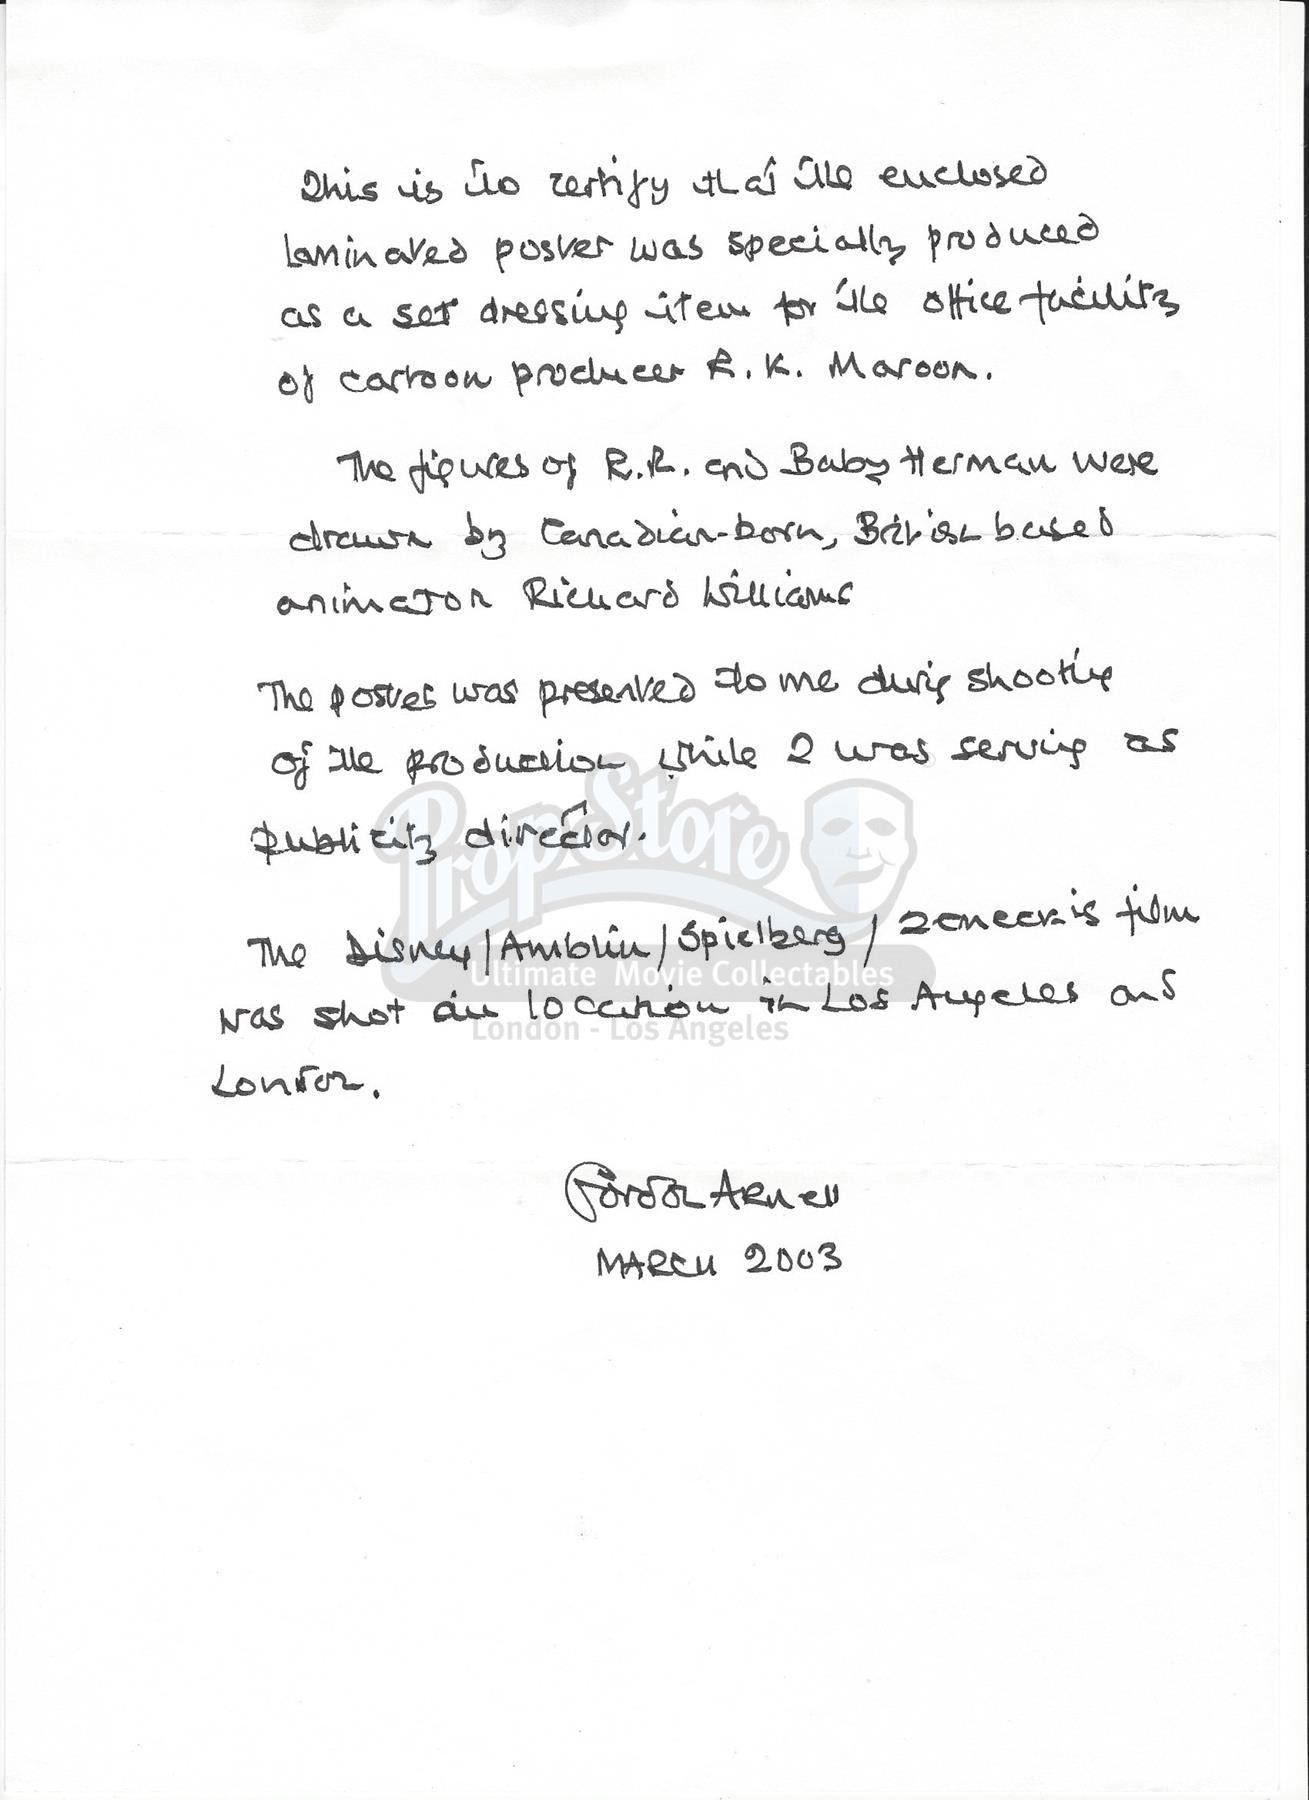 This is to certify that the enclosed
laminated poster was specially produced
as a set dressing item for the office facility
of cartoon producer R.K. Maroon.
The figures of R.R. and Baby Herman were
drawn by Canadian-born, British based
animator Richard Williams
The poster was presented to me during shooting
of the production while I was serving as
publicity director.
The Disney/Amblin/Spielberg/Zemeckis film
was shot on location in Los Angeles and
London.
Gordon Arnell
MARCH 2003
PropStore
Ultimate Movie Collectables
London - Los Angeles